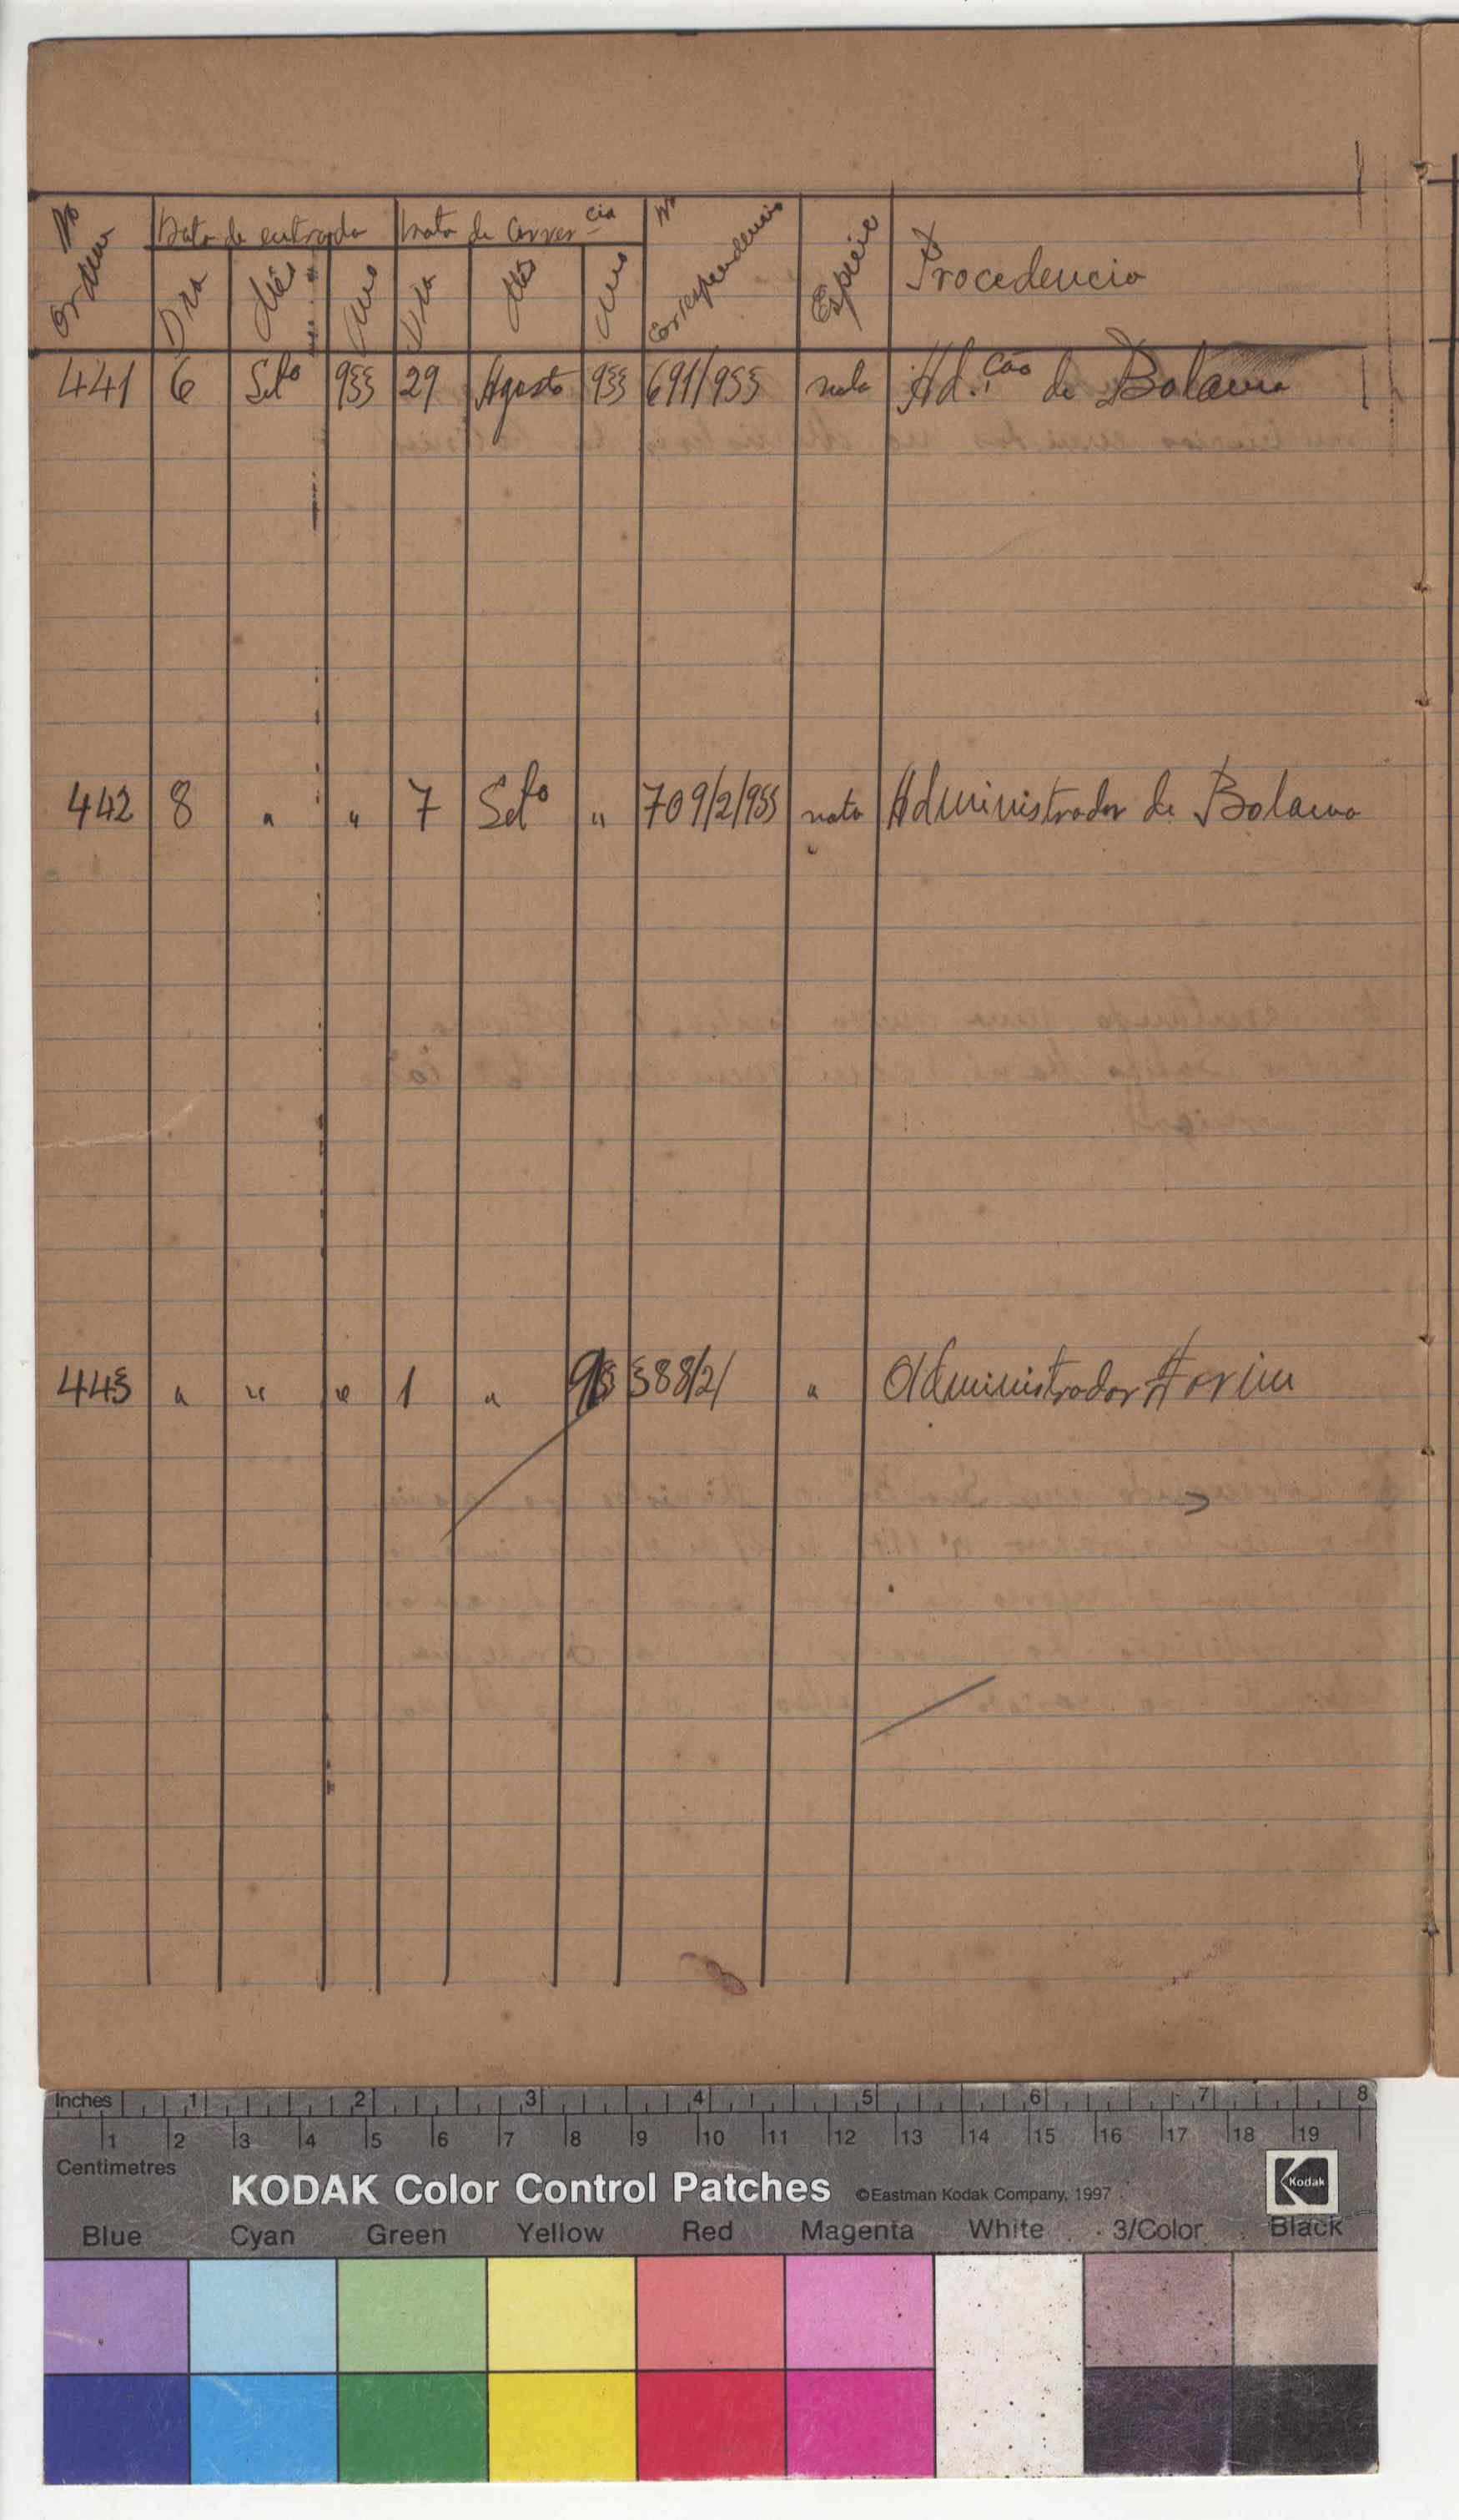 Nº Ordem Data de entrada Data de Corres.cia Nº Correspondencia Espécie Procedencia
Dia Mês Ano Dia Mês Ano
441 6 Setº 955 29 Agosto 955 691/955 nota Ad.ção de Bolama
442 8 " " 7 Setº " 709/2/955 nota Administrador de Bolama
443 " " " 1 " 955 588/2/ " Administrador Farim
Inches 1 2 3 4 5 6 7 8
1 2 3 4 5 6 7 8 9 10 11 12 13 14 15 16 17 18 19
Centimetres
KODAK Color Control Patches ©Eastman Kodak Company, 1997 Kodak
Blue Cyan Green Yellow Red Magenta White 3/Color Black